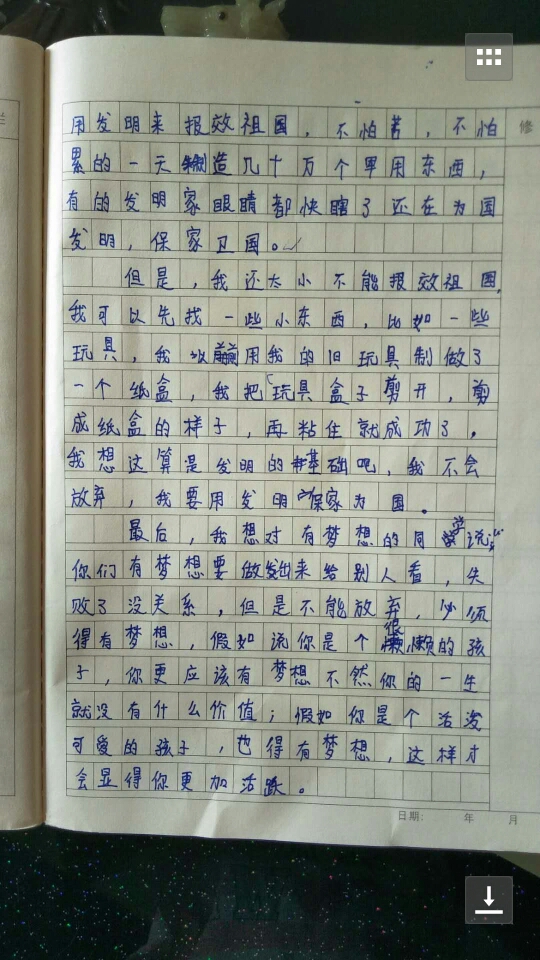 用发明来报效祖国，不怕苦，不怕
累的一天制造几十万个军用东西，
有的发明家眼睛都快瞎了还在为国
发明，保家卫国。
但是，我还太小不能报效祖国，
我可以先找一些小东西，比如一些
玩具，我以用我的旧玩具制做了
一个纸盒，我把玩具盒子剪开，剪
成纸盒的样子，再粘住就成功了。
我想这算是发明的基础吧，我不会
放弃，我要用发明保家为国。
最后，我想对有梦想的同学说
你们有梦想要做发出来给别人看，失
败了没关系，但是不能放弃，必须
得有梦想，假如流你是个很懒的孩
子，你更应该有梦想不然你的一生
就没有什么价值；假如你是个活泼
可爱的孩子，也得有梦想，这样才
会显得你更加活跃。
日期： 年 月
修